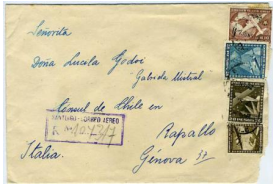 Señorita
Doña Lucila Godoi
Gabriela Mistral
Consul de Chile en
SANTIAGO - CORREO AEREO
R Nº
Rapallo
Italia.
Génova